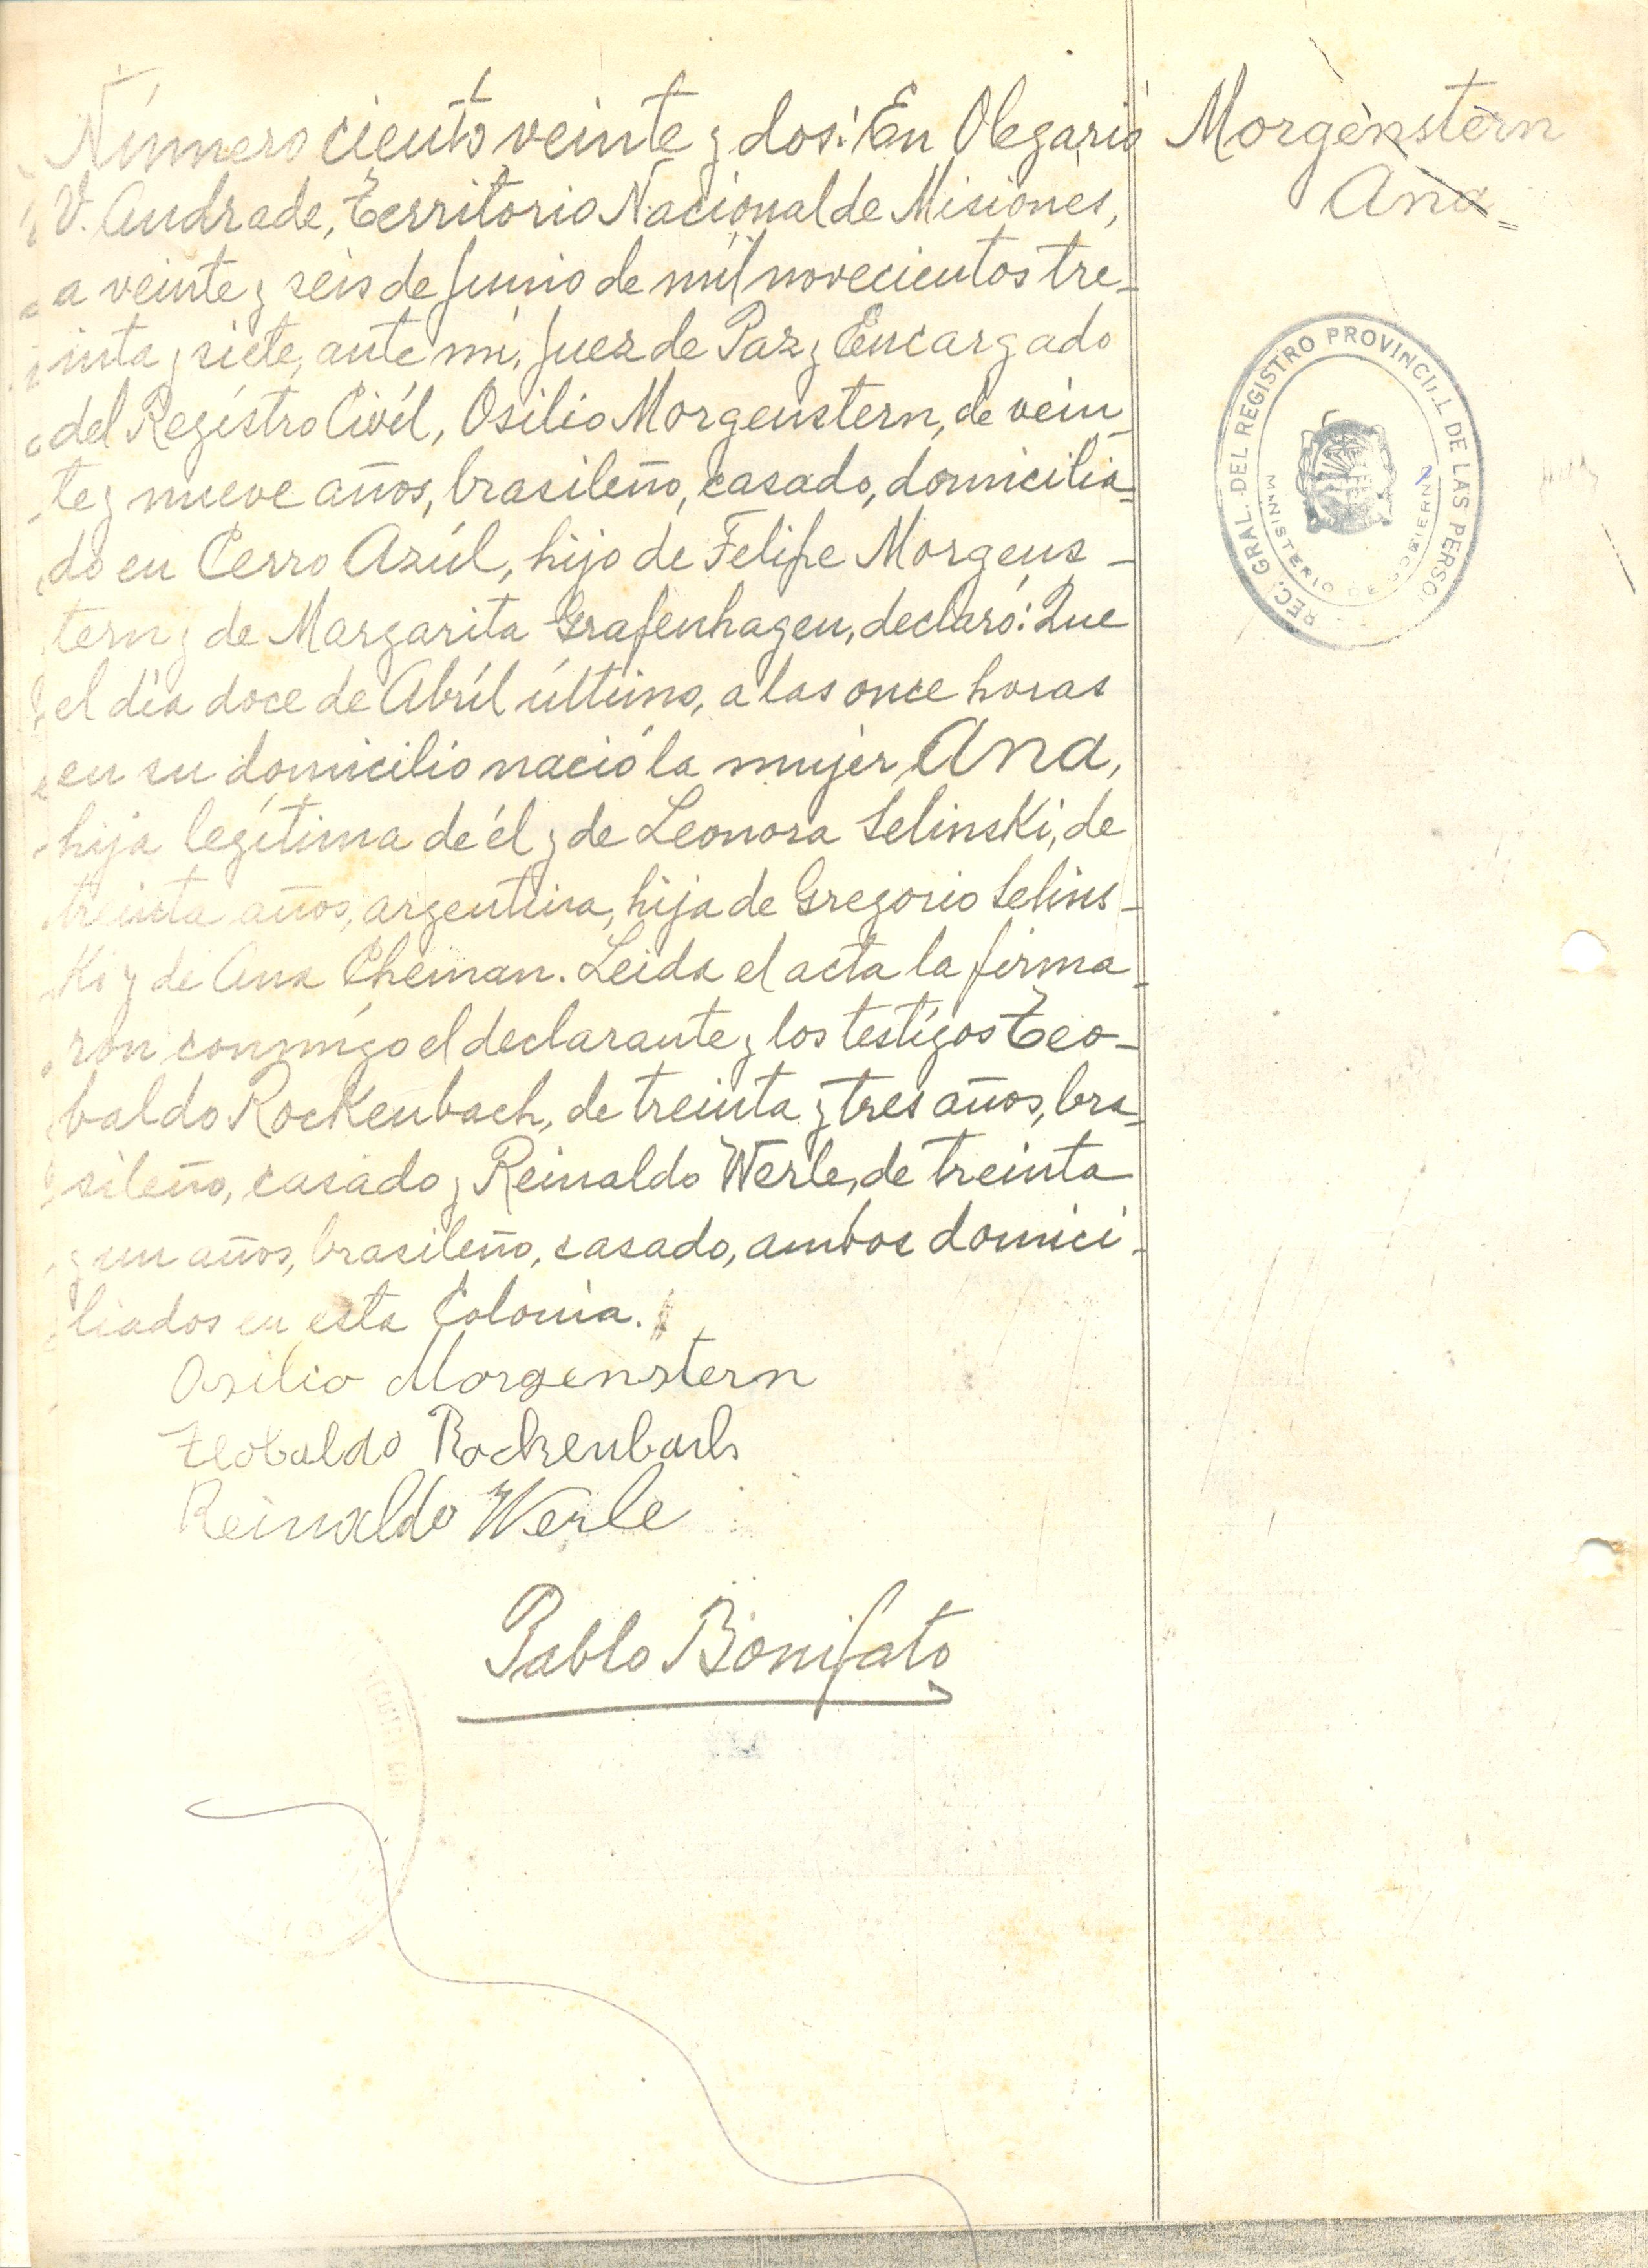 Número ciento veinte y dos: En Olegario
V. Andrade, Territorio Nacional de Misiones,
a veinte y seis de Junio de mil novecientos tre-
inta y siete, ante mí, Juez de Paz y Encargado
del Registro Civil, Osilio Morgenstern, de vein-
te y nueve años, brasileño, casado, domicilia-
do en Cerro Azúl, hijo de Felipe Morgens-
tern y de Margarita Grafenhagen, declaró: Que
el día doce de Abríl último, a las once horas
en su domicilio nació la mujer Ana,
hija legítima de él y de Leonora Selinski, de
treinta años, argentina, hija de Gregorio Selins-
ki y de Ana Cheman. Leida el acta la firma-
ron conmigo el declarante y los testigos Teo-
baldo Rockenbach, de treinta y tres años, bra-
sileño, casado y Reinaldo Werle, de treinta
y un años, brasileño, casado, ambos domici-
liados en esta Colonia.
Osilio Morgenstern
Teobaldo Rockenbach
Reinaldo Werle
Pablo Bonifato
Morgenstern
Ana
REG. GRAL. DEL REGISTRO PROVINCIAL DE LAS PERSO
MINISTERIO DE GOBIERNO